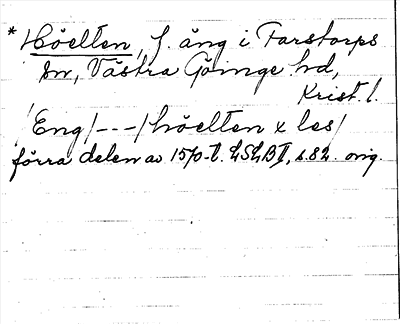 * Höelten, f. äng i Farstorps
sn, Västra Göinge hd,
Krist. l.
/Eng/---/höelten x les/
förra delen av 1570-t. LSLB II, s. 82. orig.